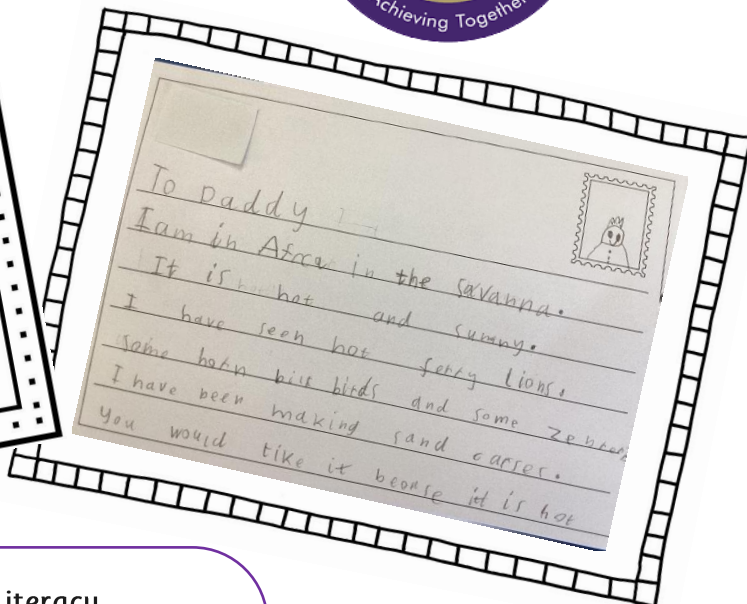 Achieving Together
To Daddy
I am in Afrca in the savanna.
It is hot and sunny.
I have seen hot ferry lions.
some horn bill birds and some Zebras
I have been making sand carses.
You would like it beonse it is hot
iteracy